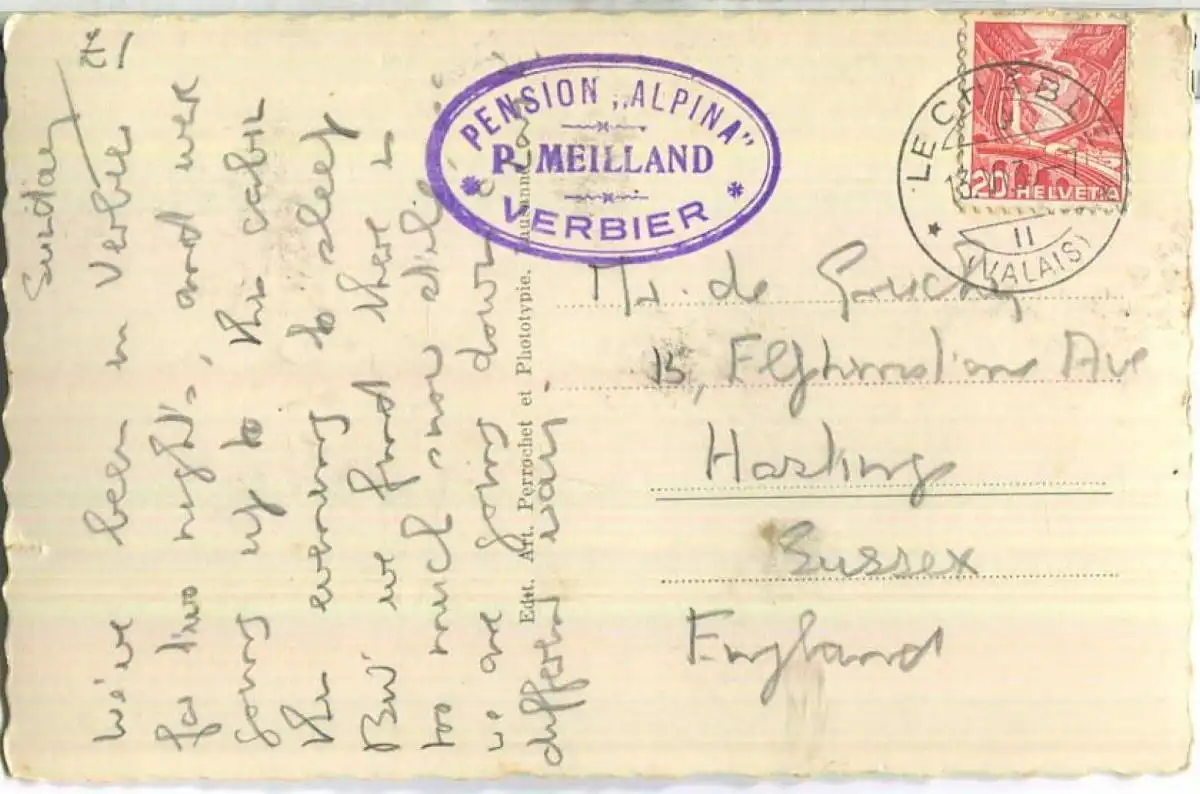 Sunday
We've been in Verbier
for two nights, and were
going up to the cabin
this evening to sleep
But we find there is
too much snow still
we are going down a
different way
Edit. Art. Perrochet et Phototypie. Lausanne
PENSION „ALPINA"
P. MEILLAND
VERBIER
LE CHÂBLE
(VALAIS)
II
20 HELVETIA
de Gruchy
Ave
Hastings
Sussex
England